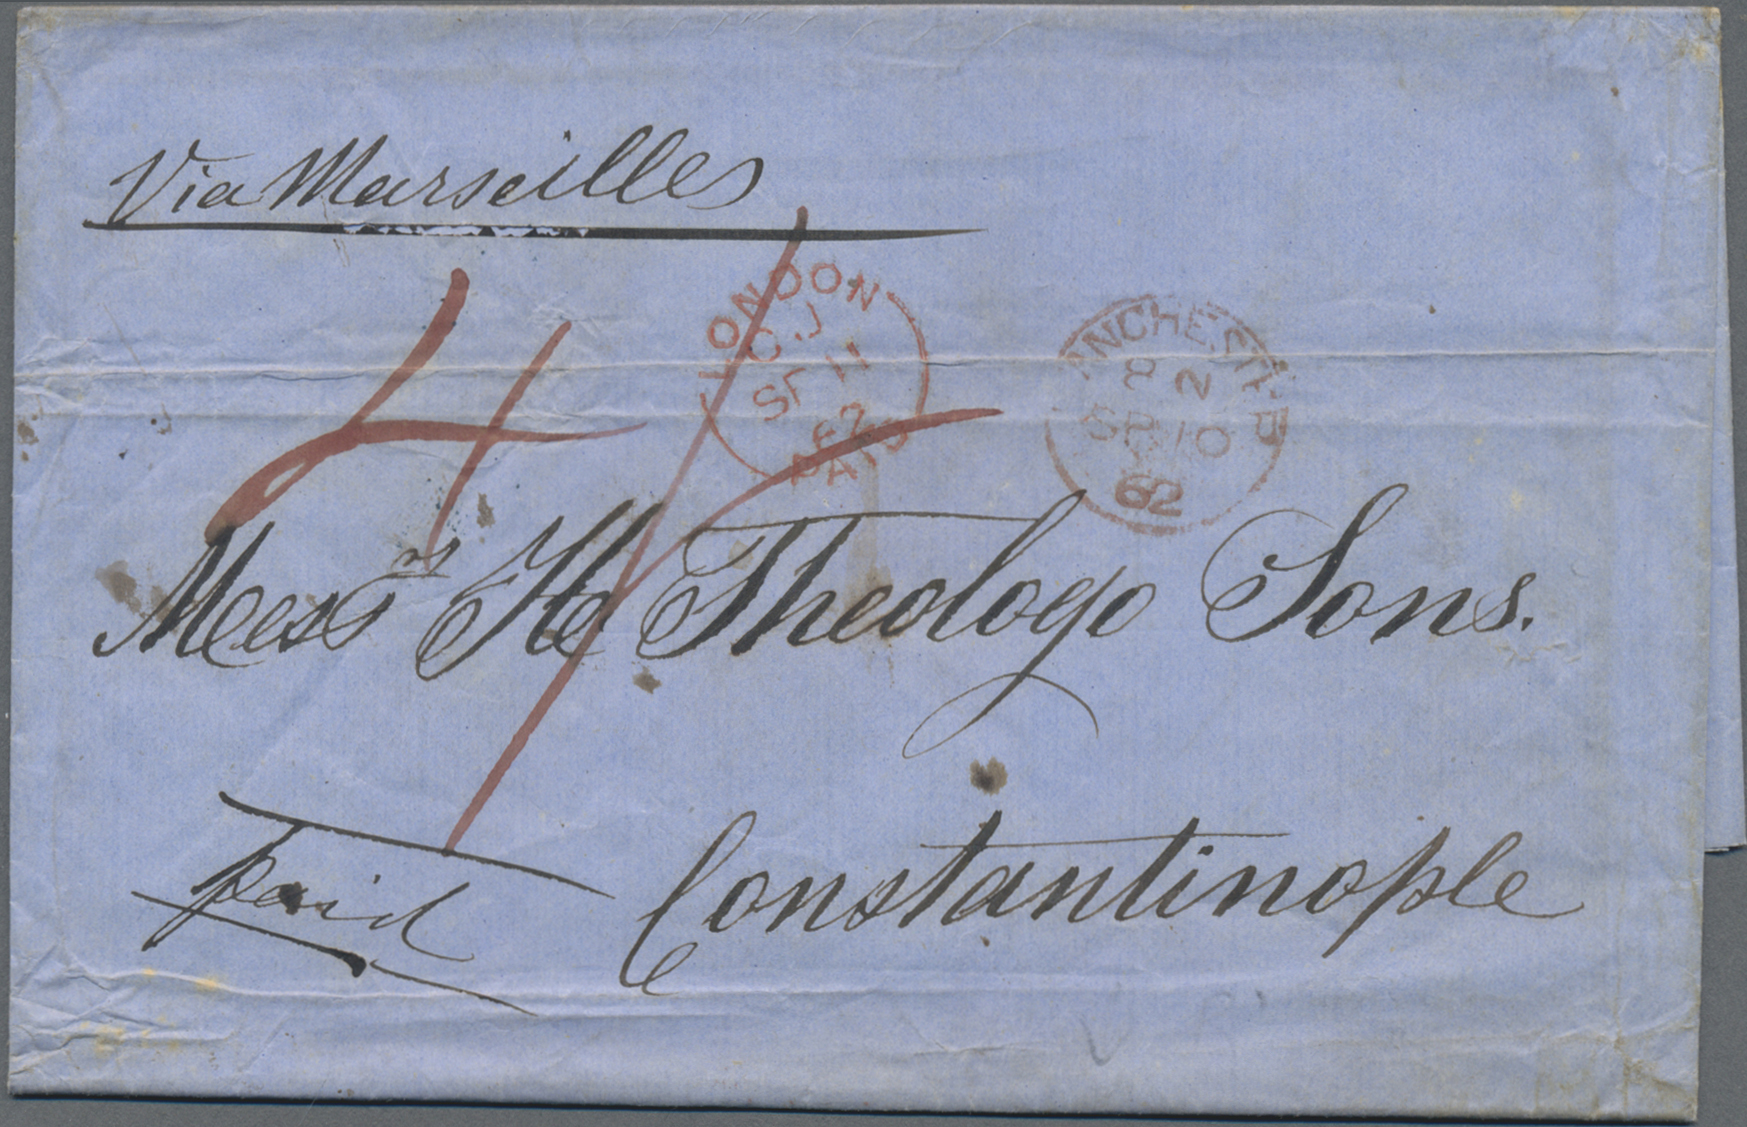 Via Marseilles
4/
LONDON
C.J
SP 11
62
PAID
MANCHESTER
2
SP 10
62
Messrs Theologo Sons.
paid Constantinople